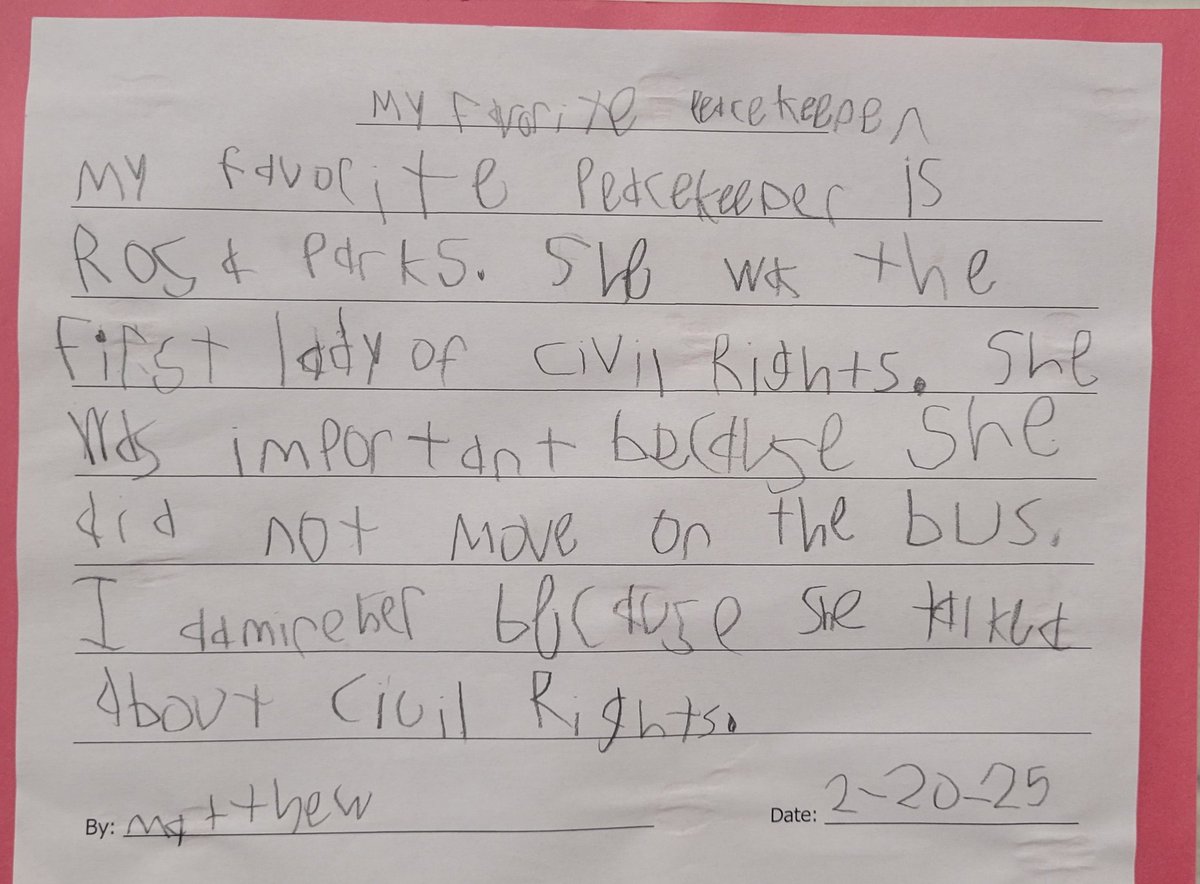 My Favorite Peacekeeper
My favorite Peacekeeper is
Rosa Parks. She was the
First lady of Civil Rights. She
Was important because She
did not move on the bus.
I admire her because she talked
About Civil Rights.
By: Matthew Date: 2-20-25